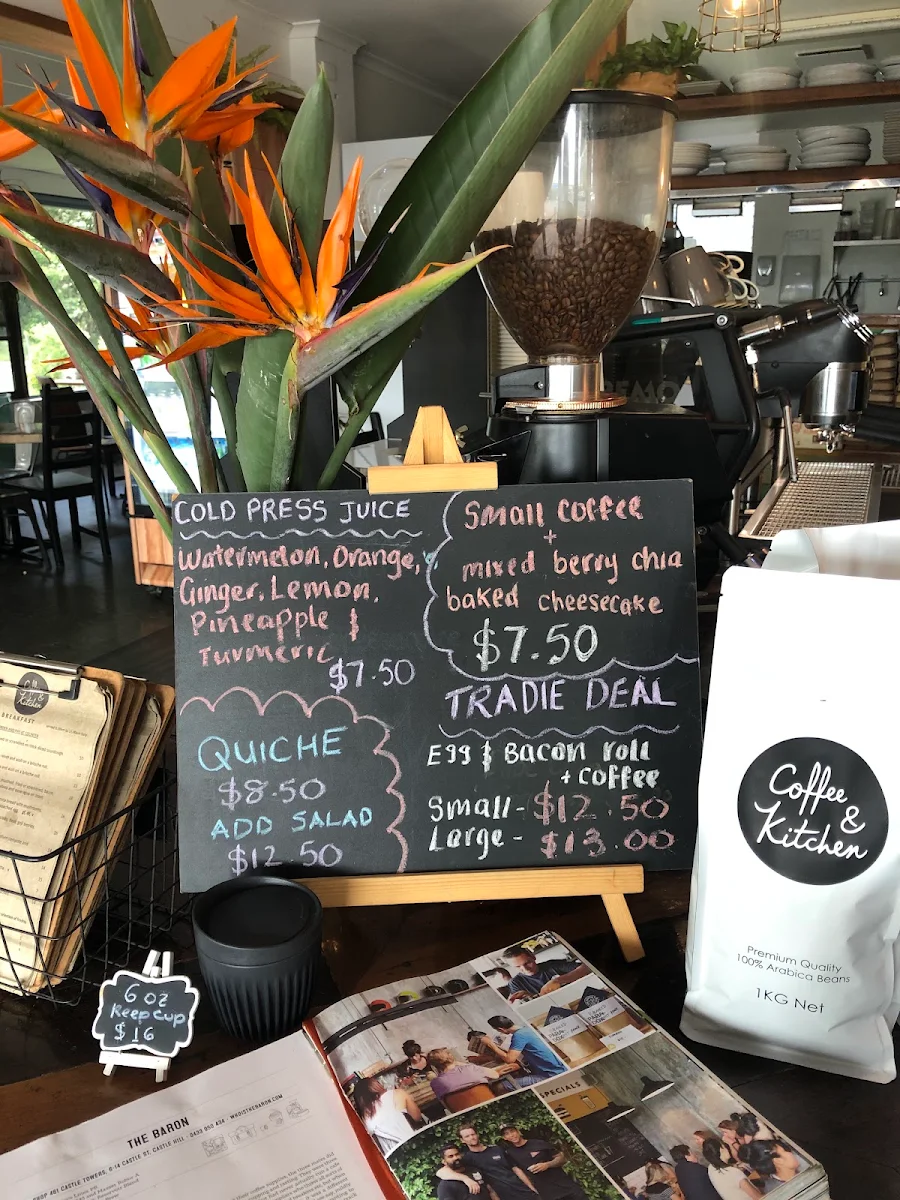 COLD PRESS JUICE
Watermelon, Orange,
Ginger, Lemon,
Pineapple &
Turmeric
$7.50
QUICHE
$8.50
ADD SALAD
$12.50
Small coffee
+
mixed berry chia
baked cheesecake
$7.50
TRADIE DEAL
Egg & Bacon roll
+ coffee
Small - $12.50
Large - $13.00
Coffee
&
Kitchen
Premium Quality
100% Arabica Beans
1KG Net
Kitchen
BREAKFAST
6 oz
Keep cup
$16
THE BARON
SHOP 401 CASTLE TOWERS, 6-14 CASTLE ST, CASTLE HILL
WHOISTHEBARON.COM
SPECIALS